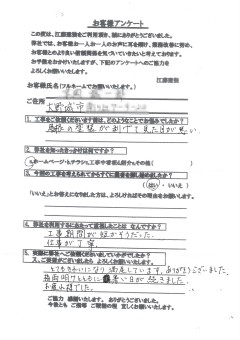 お客様アンケート
この度は、江藤塗装をご利用頂き、誠にありがとうございました。
弊社では、お客様お一人お一人のお声に耳を傾け、業務改善に努め、
お客様とのより良い信頼関係を気づいていきたいと考えております。
お手数をおかけいたしますが、下記のアンケートへのご協力を
よろしくお願いいたします。
江藤塗装
お客様氏名（フルネームでお願いいたします。）
ご住所
大野城市
1、工事をご依頼くださいます前は、どのようなことでお悩みでしたか？
屋根の塗装が剥げて見た目が悪い
2、弊社を知ったきっかけは何ですか？
3、今回の工事を考えられてからすぐに業者を探し始めましたか？
（はい・いいえ）
「いいえ」とお答えになりました方は、よろしければその理由をお願いします。
4、弊社を利用するにあたって重視したことはなんですか？
工事期間が短かそうだった
仕事が丁寧
5、実際に弊社へご依頼くださいましていかがでしたか？
又、ご感想がございましたらよろしくお願いいたします。
とてもきれいになり満足しています。ありがとうございました。
梅雨明けとともに暑い日が続きました
お疲れ様でした。
ご協力感謝いたします。ありがとうございました。
今後ともご指導ご鞭撻の程宜しくお願いいたします。